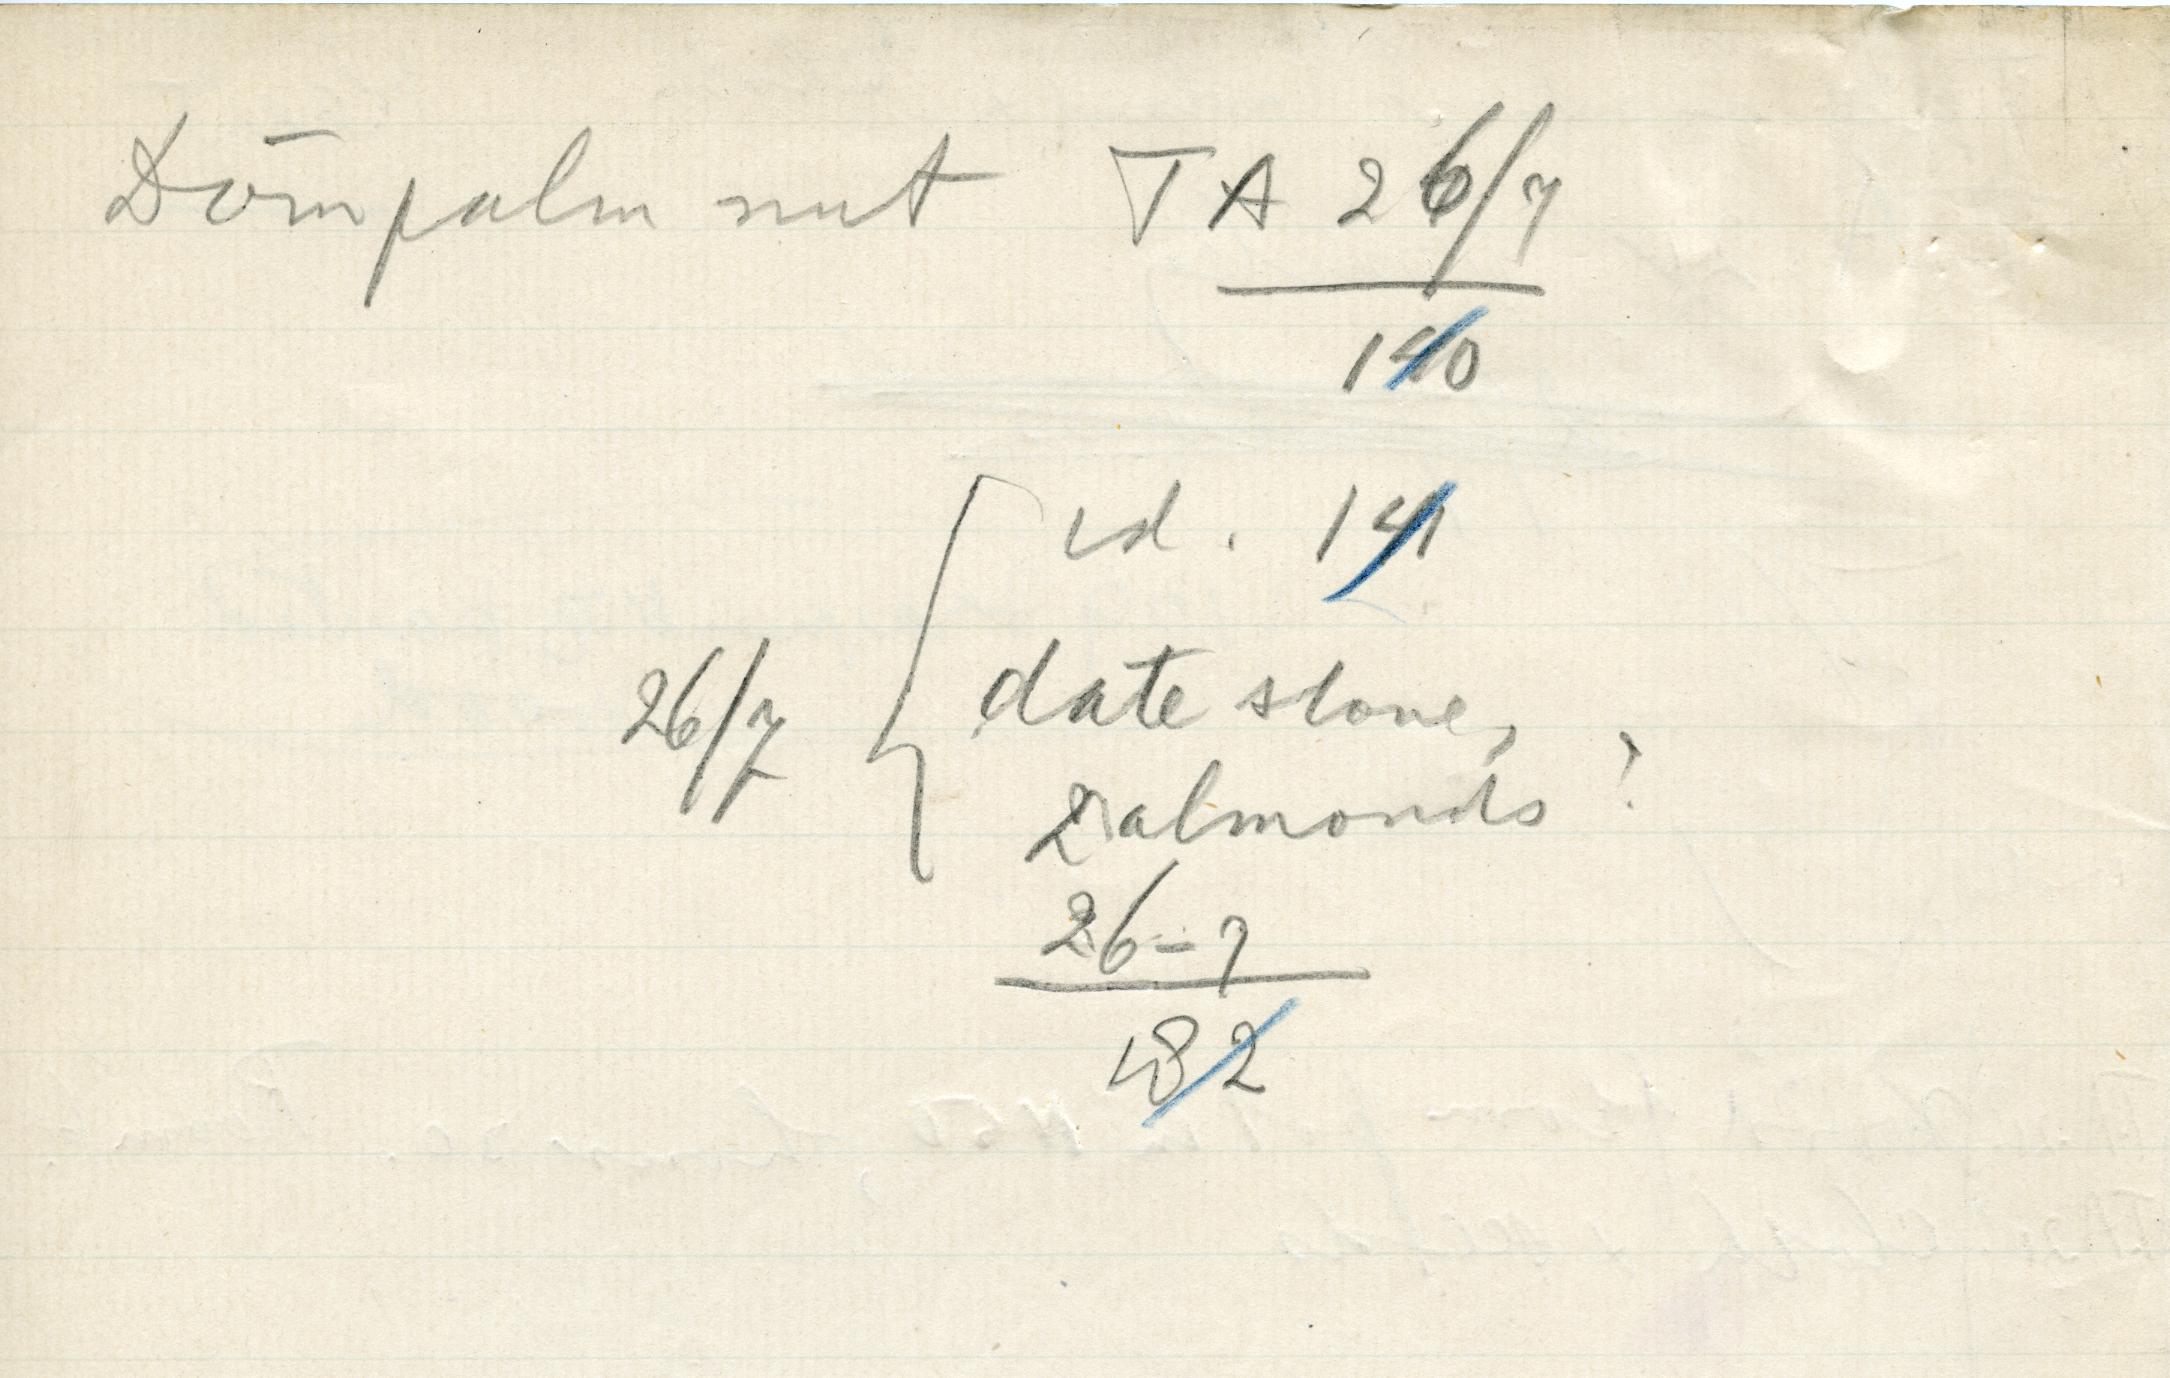 Dōmpalm nut TA 26/7
140
id. 141
26/7
date stone,
2 almonds ?
26-7
182